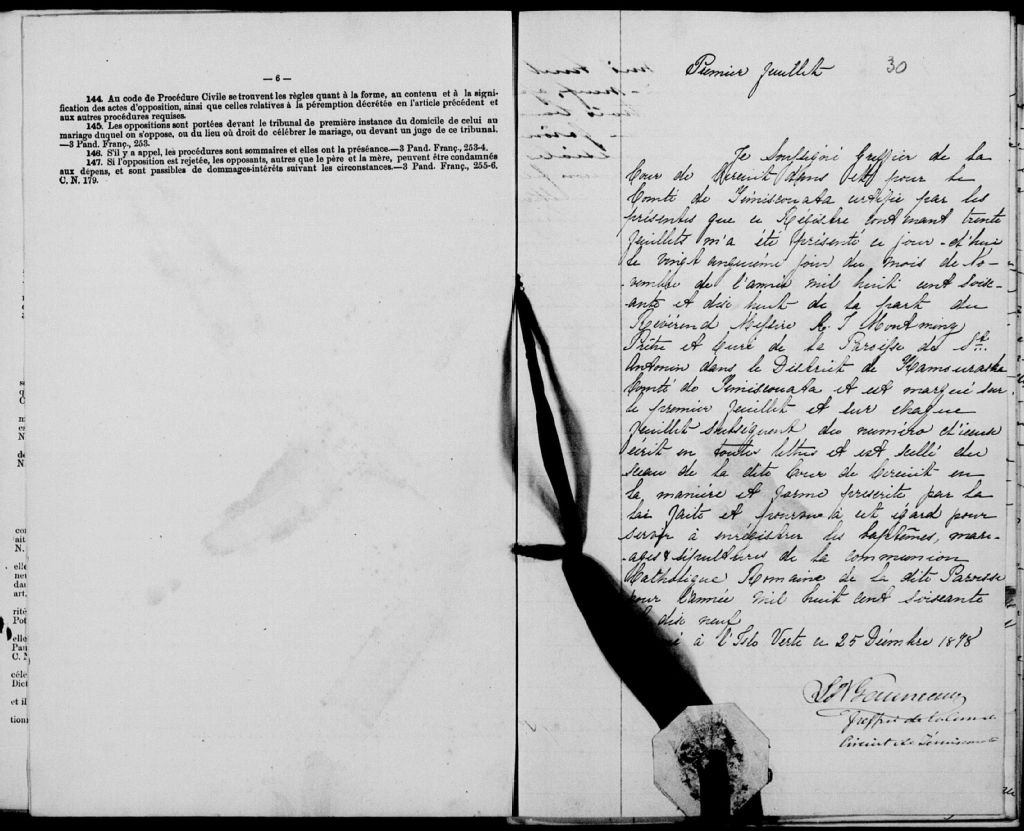 — 6 —
144. Au code de Procédure Civile se trouvent les règles quant à la forme, au contenu et à la signi-
fication des actes d'opposition, ainsi que celles relatives à la péremption décrétée en l'article précédent et
aux autres procédures requises.
145. Les oppositions sont portées devant le tribunal de première instance du domicile de celui au
mariage duquel on s'oppose, ou du lieu où droit de célébrer le mariage, ou devant un juge de ce tribunal.
—3 Pand. Franç., 253.
146. S'il y a appel, les procédures sont sommaires et elles ont la préséance.—3 Pand. Franç., 253-4.
147. Si l'opposition est rejetée, les opposants, autres que le père et la mère, peuvent être condamnés
aux dépens, et sont passibles de dommages-intérêts suivant les circonstances.—3 Pand. Franç., 255-6.
C. N. 179.
Premier feuillet 30
Je soussigné Greffier de la
Cour de Circuit dans et pour le
Comté de Témiscouata certifie par les
présentes que ce Régistre contenant trente
feuillets m'a été présenté ce jour-d'hui
le vingt cinquième jour du mois de
-vembre de l'année mil huit cent soix-
-ante et dix huit de la part du
Révérend Messire Montminy
Prêtre et Curé de la Paroisse de St.
Antonin dans le District de Kamouraska
Comté de Témiscouata et est marqué sur
le premier feuillet et sur chaque
feuillet subséquent du numéro d'iceux
écrit en toutes lettres et est scellé du
sceau de la dite Cour de Circuit en
la manière et forme prescrite par la
loi faite et pourvue à cet égard pour
servir à enrégistrer les baptêmes, mari-
-ages & sépultures de la communion
Catholique Romaine de la dite Paroisse
pour l'année mil huit cent soixante
dix neuf
à l'Isle Verte ce 25 Décembre 1878
Greffier de la Cour de
Circuit de Témiscouata